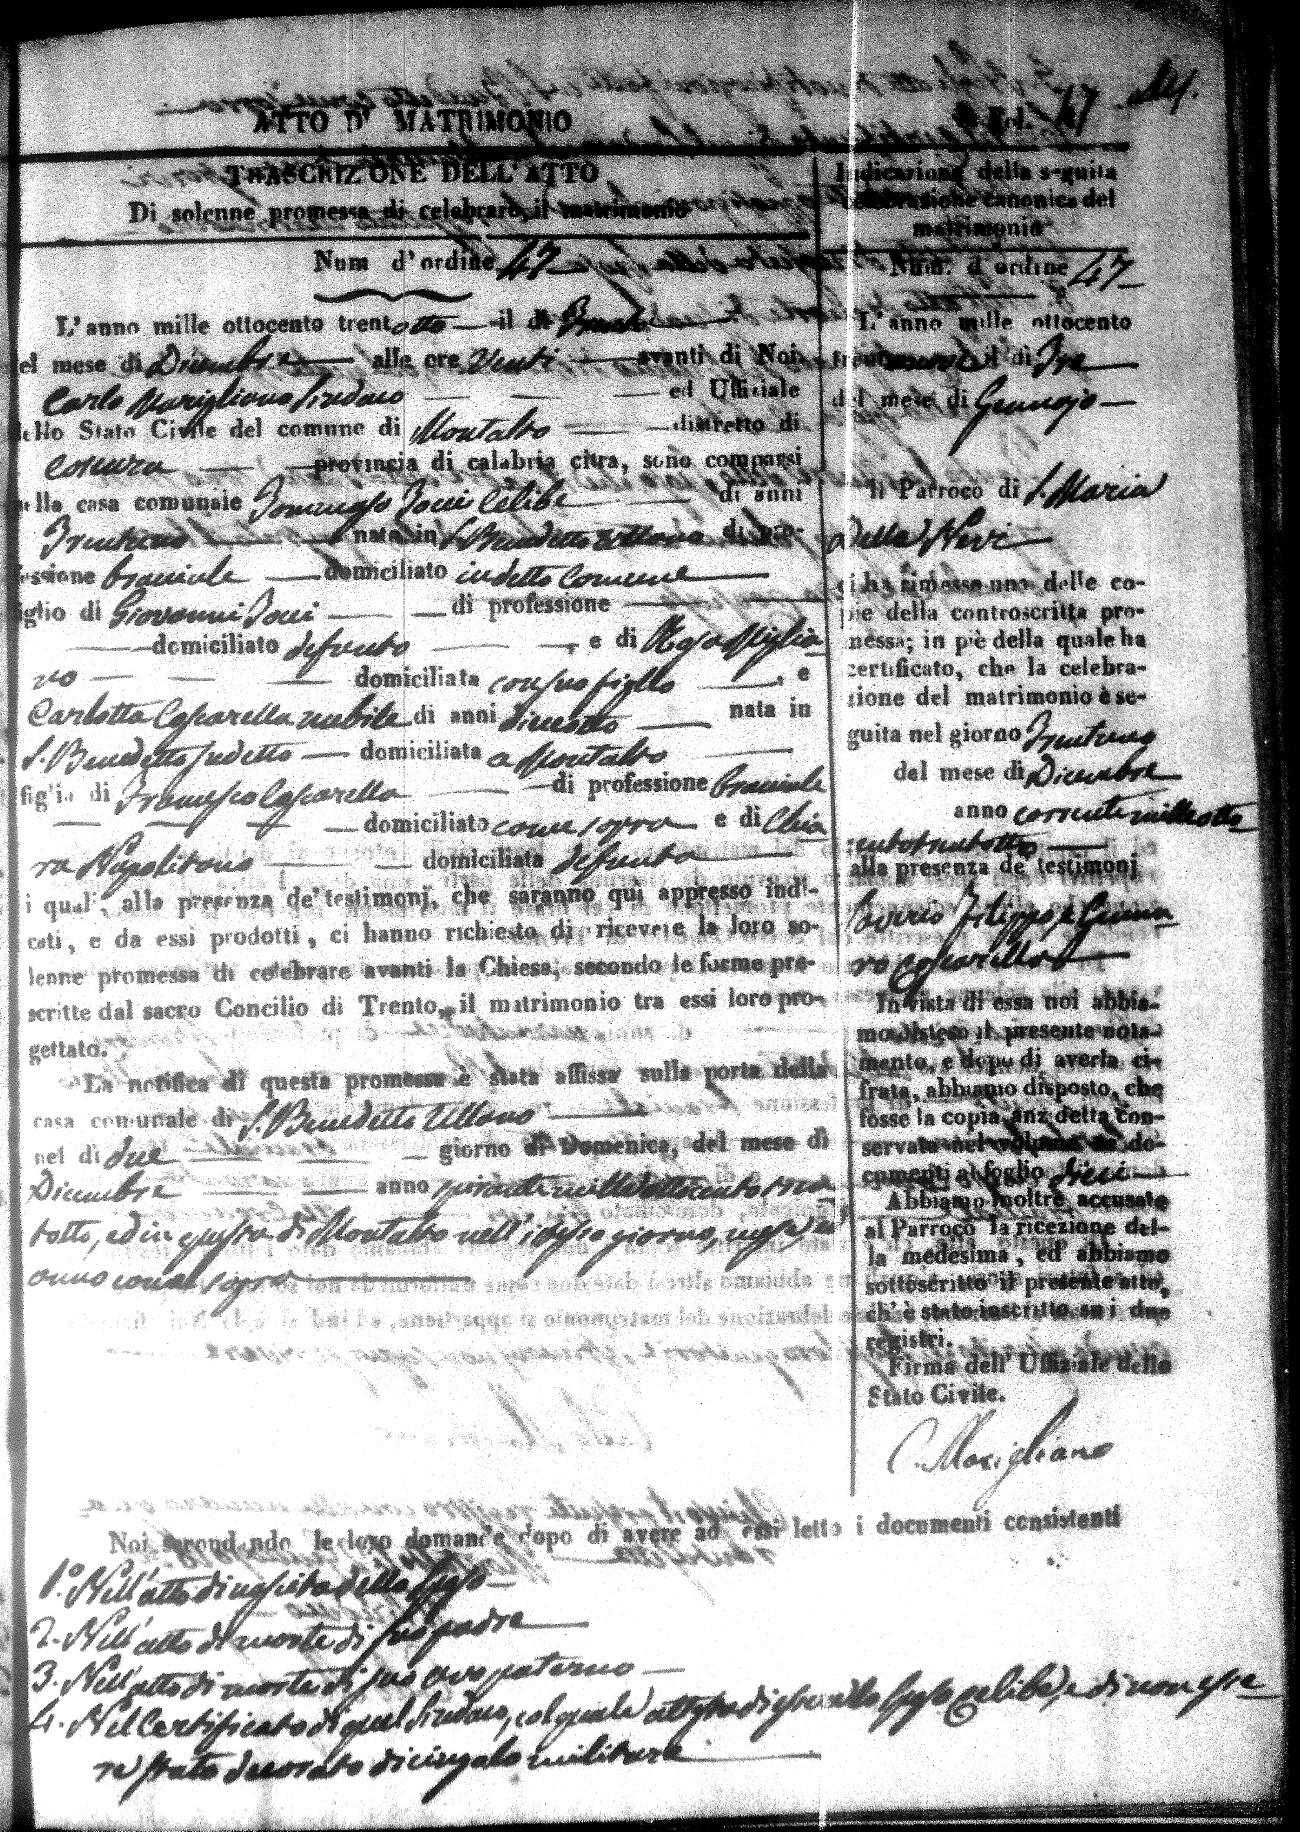 ATTO D' MATRIMONIO
Fol. 47
TRASCRIZIONE DELL'ATTO
Di solenne promessa di celebrare il matrimonio
Num d'ordine 47
L'anno mille ottocento trentotto il dì Trenta
del mese di Dicembre alle ore Venti avanti di Noi
Carlo Marigliano Sindaco ed Uffiziale
dello Stato Civile del comune di Montalto distretto di
Cosenza provincia di calabria citra, sono comparsi
nella casa comunale celibe di anni
Trentuno nato in S. Benedetto Ullano di pro-
fessione braciale domiciliato in detto Comune
figlio di Giovanni di professione
domiciliato defunto , e di Rosa Miglia
no domiciliata con suo figlio , e
Carlotta Casparella nubile di anni diciotto nata in
S. Benedetto sudetto domiciliata a Montalto
figlia di Francesco Casparella di professione braciale
domiciliato come sopra e di Chia
ra Napolitano domiciliata defunta
i quali, alla presenza de' testimonj, che saranno quì appresso indi-
cati, e da essi prodotti, ci hanno richiesto di ricevere la loro so-
lenne promessa di celebrare avanti la Chiesa, secondo le forme pre-
scritte dal sacro Concilio di Trento, il matrimonio tra essi loro pro-
gettato.
La notifica di questa promessa è stata affissa sulla porta della
casa comunale di S. Benedetto Ullano
nel dì due giorno di Domenica, del mese di
Dicembre anno mille ottocento tren
totto, ed in questa di Montalto nell'istesso giorno, mese ed
anno come sopra
Indicazione della seguita
celebrazione canonica del
matrimonio
Num. d'ordine 47
L'anno mille ottocento
trentanove il dì Tre
del mese di Gennajo
Il Parroco di S. Maria
della Nevi
ci ha rimesso una delle co-
pie della controscritta pro-
messa; in piè della quale ha
certificato, che la celebra-
zione del matrimonio è se-
guita nel giorno Trentuno
del mese di Dicembre
anno corrente mille otto
cento trentotto
alla presenza de' testimonj
Saverio Filippo, e Genna
ro Casparella
In vista di essa noi abbia-
mo disteso il presente nota-
mento, e dopo di averla ci-
frata, abbiamo disposto, che
fosse la copia anzidetta con-
servata nel volume de' do-
cumenti al foglio dieci
Abbiamo inoltre accusato
al Parroco la ricezione del-
la medesima, ed abbiamo
sottoscritto il presente atto,
ch'è stato inscritto su i due
registri.
Firma dell'Uffiziale dello
Stato Civile.
C. Marigliano
Noi secondando le loro domande dopo di avere ad essi letto i documenti consistenti
1.° Nell'atto di nascita dello sposo
2. Nell'atto di morte di suo padre
3. Nell'atto di morte di suo avo paterno
4. Nel Certificato di quel Sindaco, col quale attesta di essere lo sposo celibe, e di non esse
re stato decorato di cingolo militare